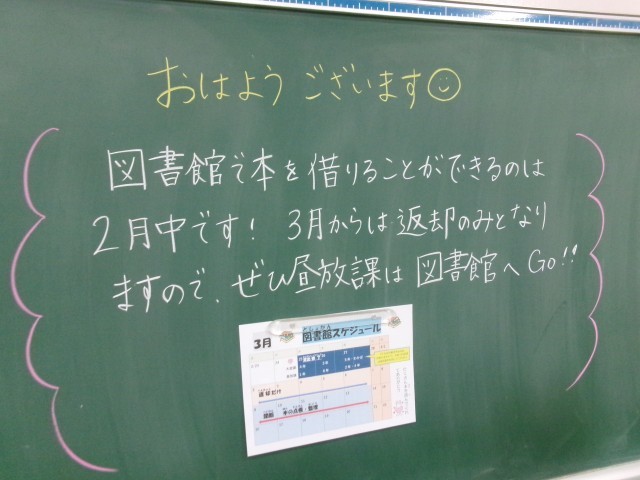 おはようございます
図書館で本を借りることができるのは
2月中です! 3月からは返却のみとなり
ますので、ぜひ昼放課は図書館へGo!!
3月 図書館スケジュール